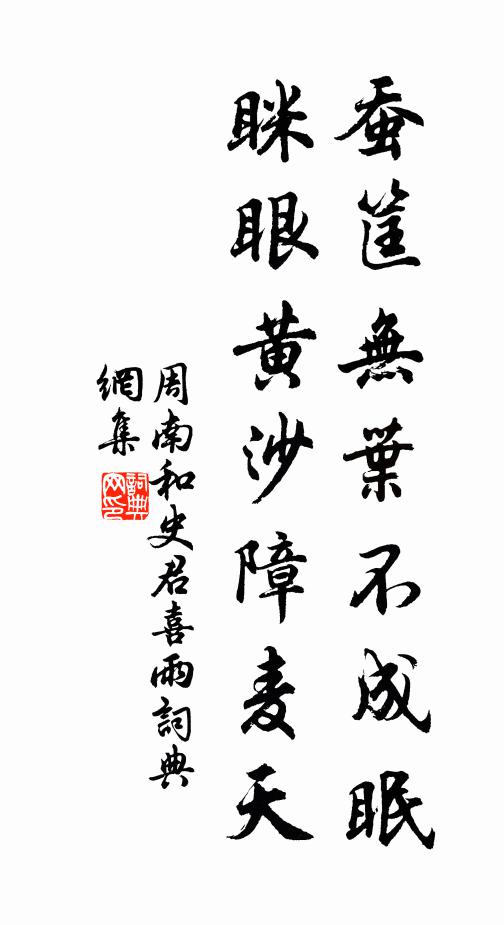 蚕筐無葉不成眠
眯眼黃沙障麦天
周南和史君喜雨詞典
網集
詞典
网印